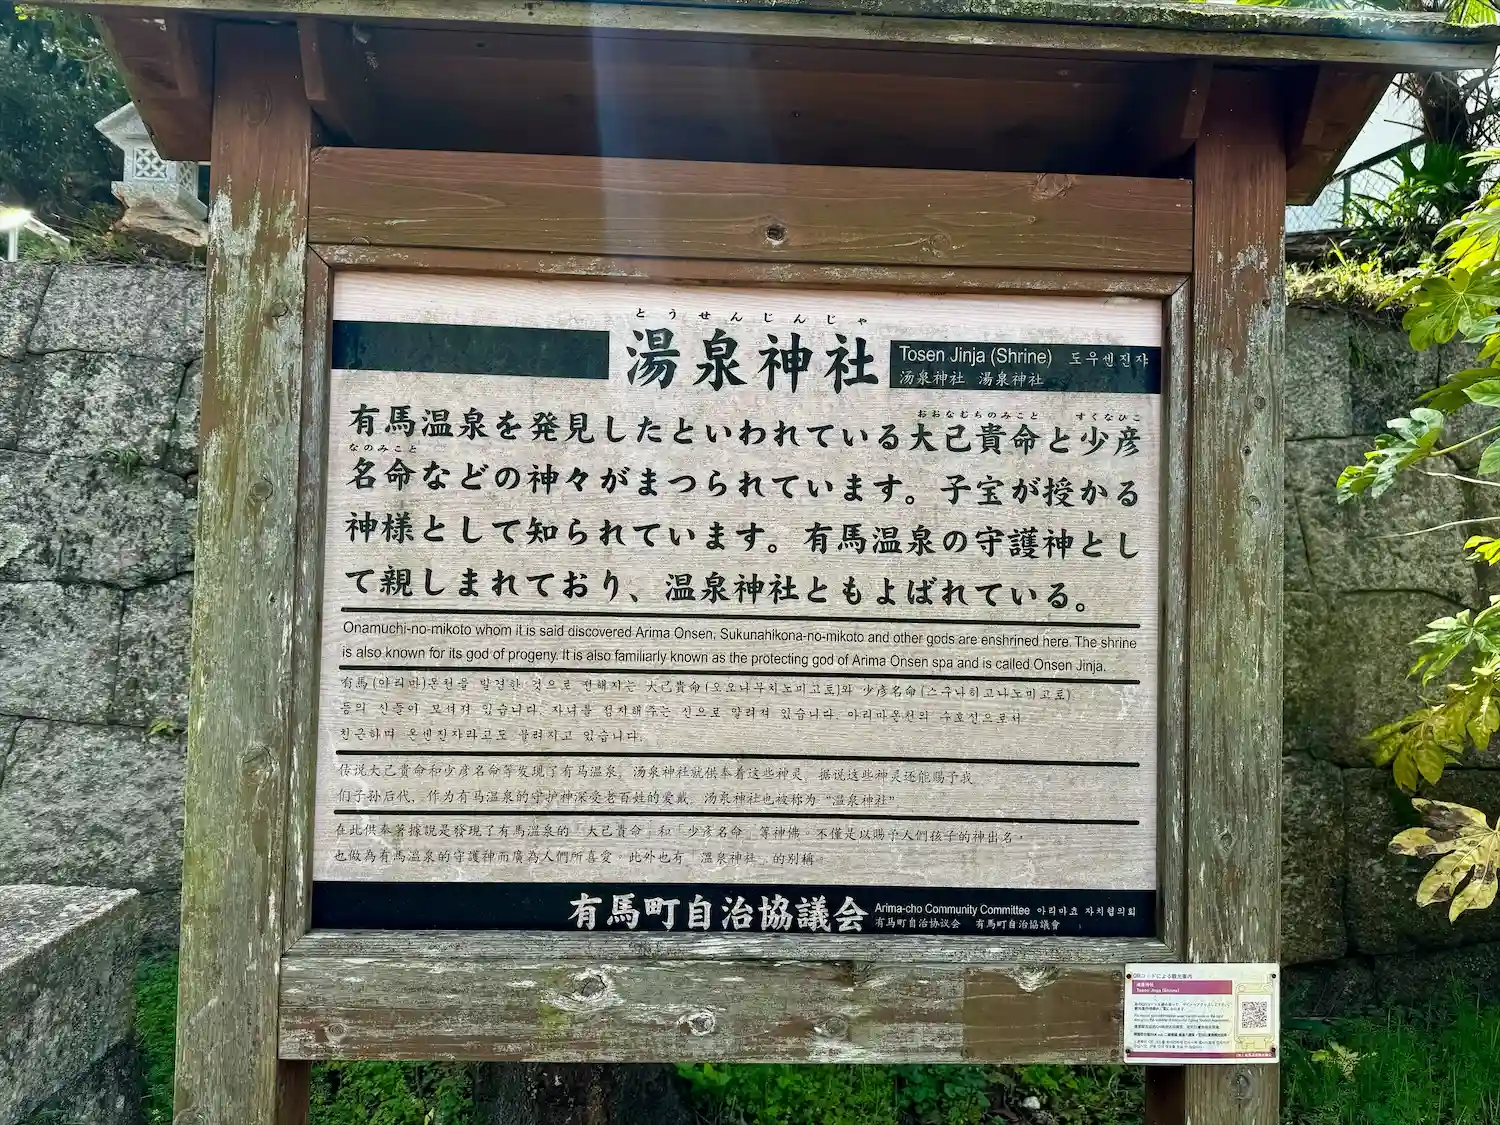 とうせんじんじゃ
湯泉神社
Tosen Jinja (Shrine) 도우센진쟈
汤泉神社 湯泉神社
おおなむちのみこと すくなひこ
有馬温泉を発見したといわれている大己貴命と少彦
なのみこと
名命などの神々がまつられています。子宝が授かる
神様として知られています。有馬温泉の守護神とし
て親しまれており、温泉神社ともよばれている。
Onamuchi-no-mikoto whom it is said discovered Arima Onsen, Sukunahikona-no-mikoto and other gods are enshrined here. The shrine
is also known for its god of progeny. It is also familiarly known as the protecting god of Arima Onsen spa and is called Onsen Jinja.
有馬(아리마)온천을 발견한 것으로 전해지는 大己貴命(오오나무치노미고토)와 少彦名命(스구나히고나노미고토)
등의 신들이 모셔져 있습니다. 자녀를 점지해주는 신으로 알려져 있습니다. 아리마온천의 수호신으로서
친근하며 온센진쟈라고도 불려지고 있습니다.
传说大己貴命和少彦名命等发现了有马温泉。汤泉神社就供奉着这些神灵。据说这些神灵还能赐予我
们子孙后代，作为有马温泉的守护神深受老百姓的爱戴。汤泉神社也被称为“温泉神社”
在此供奉著據說是發現了有馬温泉的「大己貴命」和「少彦名命」等神佛。不僅是以賜予人們孩子的神出名，
也做為有馬温泉的守護神而廣為人們所喜愛。此外也有「溫泉神社」的別稱。
有馬町自治協議会
Arima-cho Community Committee 아리마쵸 자치협의회
有马町自治协议会 有馬町自治協議會
QRコードによる観光案内
湯泉神社
Tosen Jinja (Shrine)